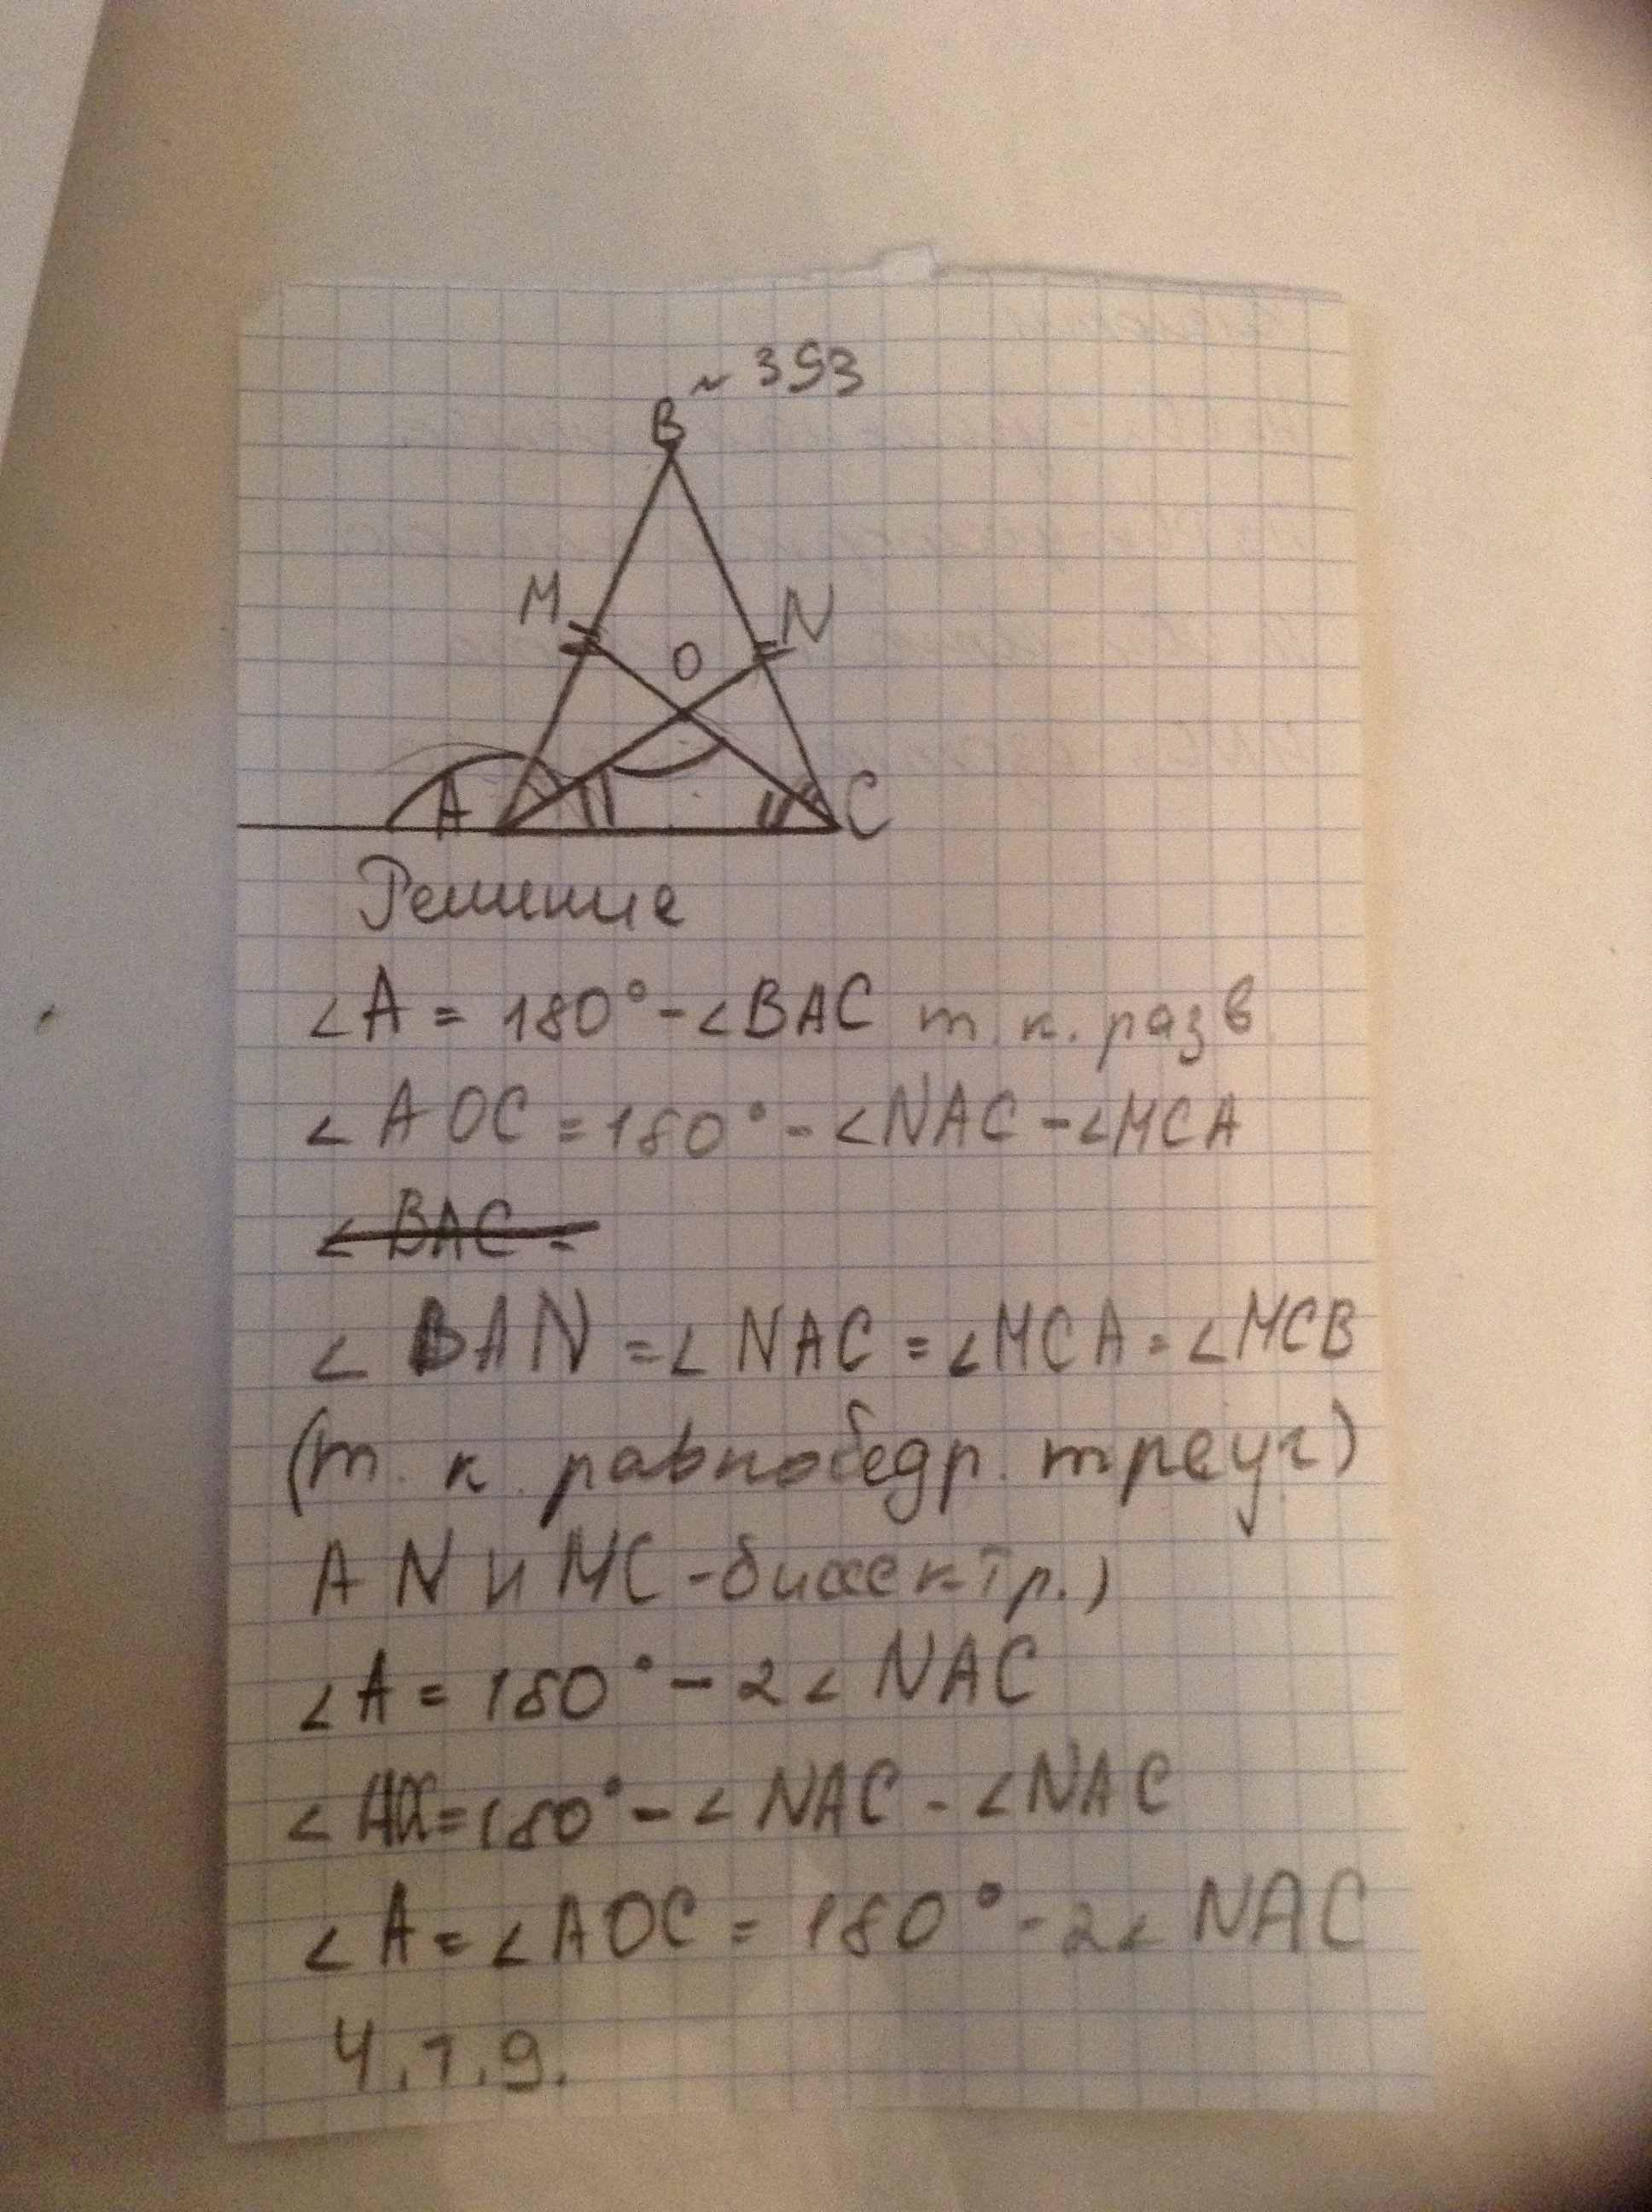 ~ 393
B
M
N
O
A
C
Решение
∠A = 180° - ∠BAC т.к. разв
∠AOC = 180° - ∠NAC - ∠MCA
∠BAC =
∠BAN = ∠NAC = ∠MCA = ∠MCB
(т.к. равнобедр. треуг)
AN и MC - биссектр.)
∠A = 180° - 2∠NAC
= 180° - ∠NAC - ∠NAC
∠A = ∠AOC = 180° - 2∠NAC
Ч.т.д.